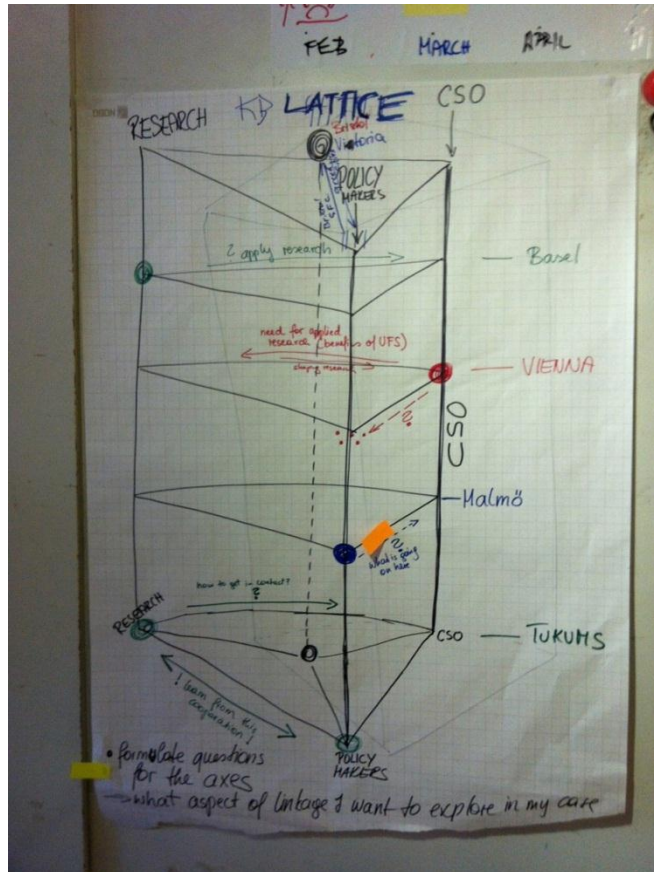 FEB MARCH APRIL
RESEARCH KB LATTICE CSO
Bristol
Victoria
POLICY
MAKERS
? apply research
Basel
need for applied
research (benefits of UFS)
VIENNA
?
CSO
Malmö
?
what is going
on here
how to get in contact?
?
RESEARCH
CSO
TUKUMS
! learn from this
cooperation!
POLICY
MAKERS
• formulate questions
for the axes
→ what aspect of linkage I want to explore in my case